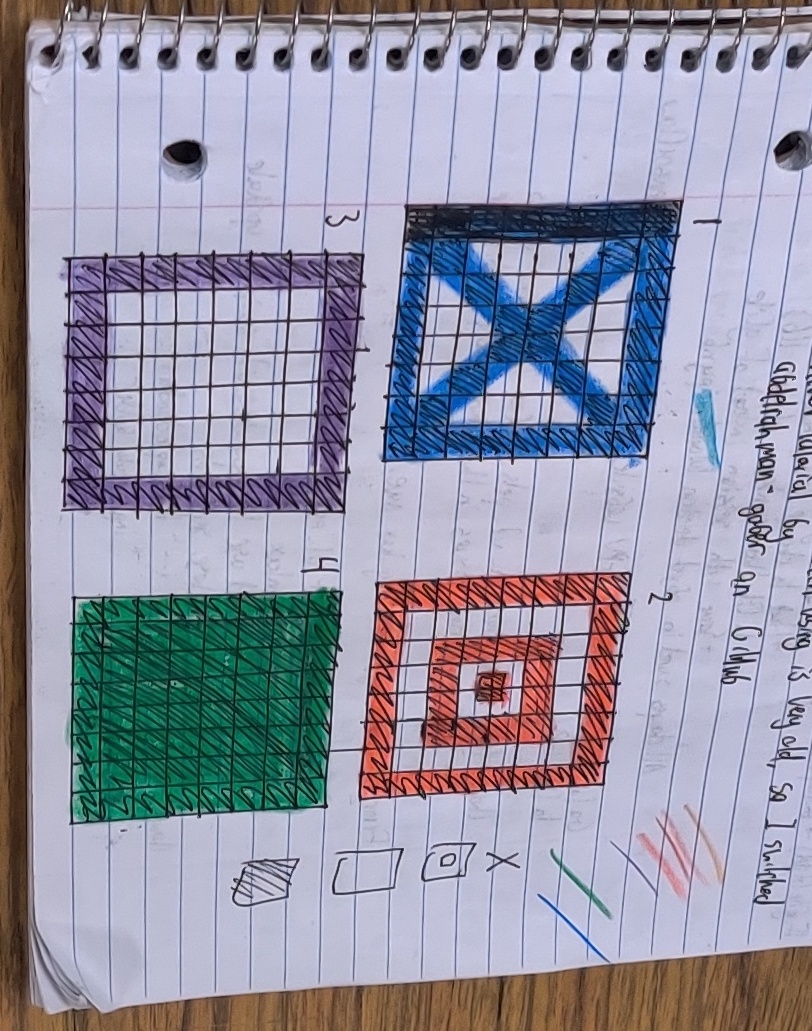 tutorial by using is very old, so I switched
abdelrahman-gaber on Github
1
2
X
3
4